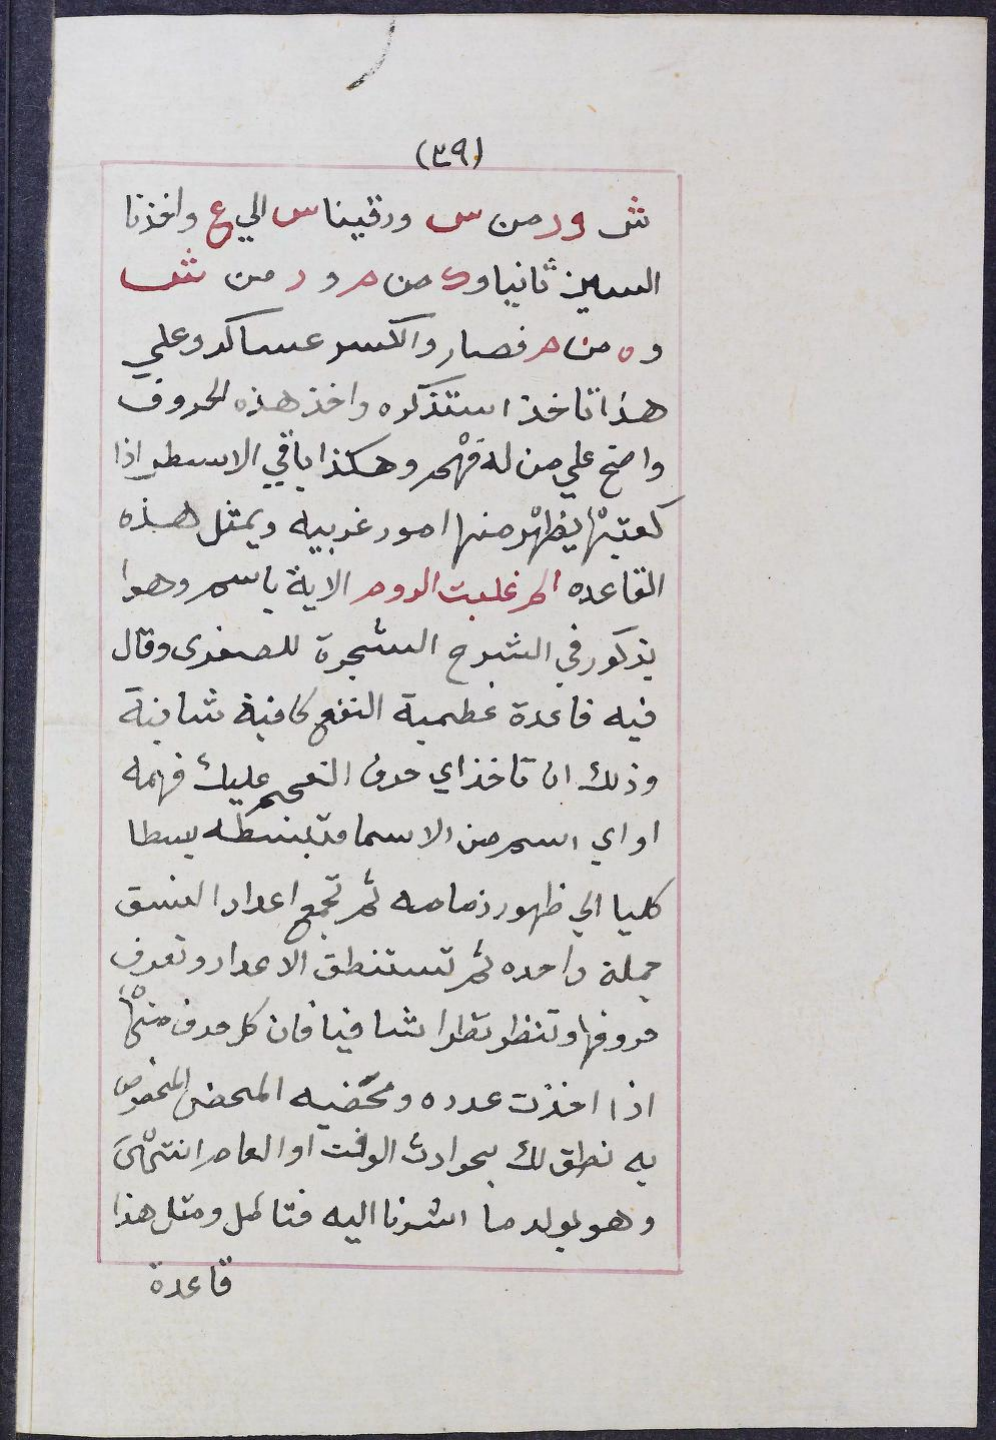 (٣٩)
ش ور من س ورقينا س الي ع واخذنا
السين ثانيا وك من م و ر من ش
وه من م فصار والكسر عساكر وعلي
هذا تاخذ استذكره واخذ هذه الحروف
واضح علي من له فهم وهكذا باقي الاسطر اذا
كعبتها يظهر منها امور غريبه ويمثل هذه
القاعده الم غلبت الروم الاية باسم وهوا
يذكور في الشرح الشجرة للصفدى وقال
فيه قاعدة عظمية النفع كافية شافية
وذلك ان تاخذ اي حرف انعجم عليك فهمه
او اي اسم من الاسما فتبسطه بسطا
كليا الي ظهور زمامه ثم تجمع اعداد النسق
جملة واحده ثم تستنطق الاعداد وتعرف
حروفها وتنظر نظرا شافيا فان كل حرف منها
اذا اخذت عدده ومخضيه المخض المخصوص
به نطق لك بحوادث الوقت او العام انتهى
وهو يولد ما اشرنا اليه فتامل ومثل هذا
قاعدة